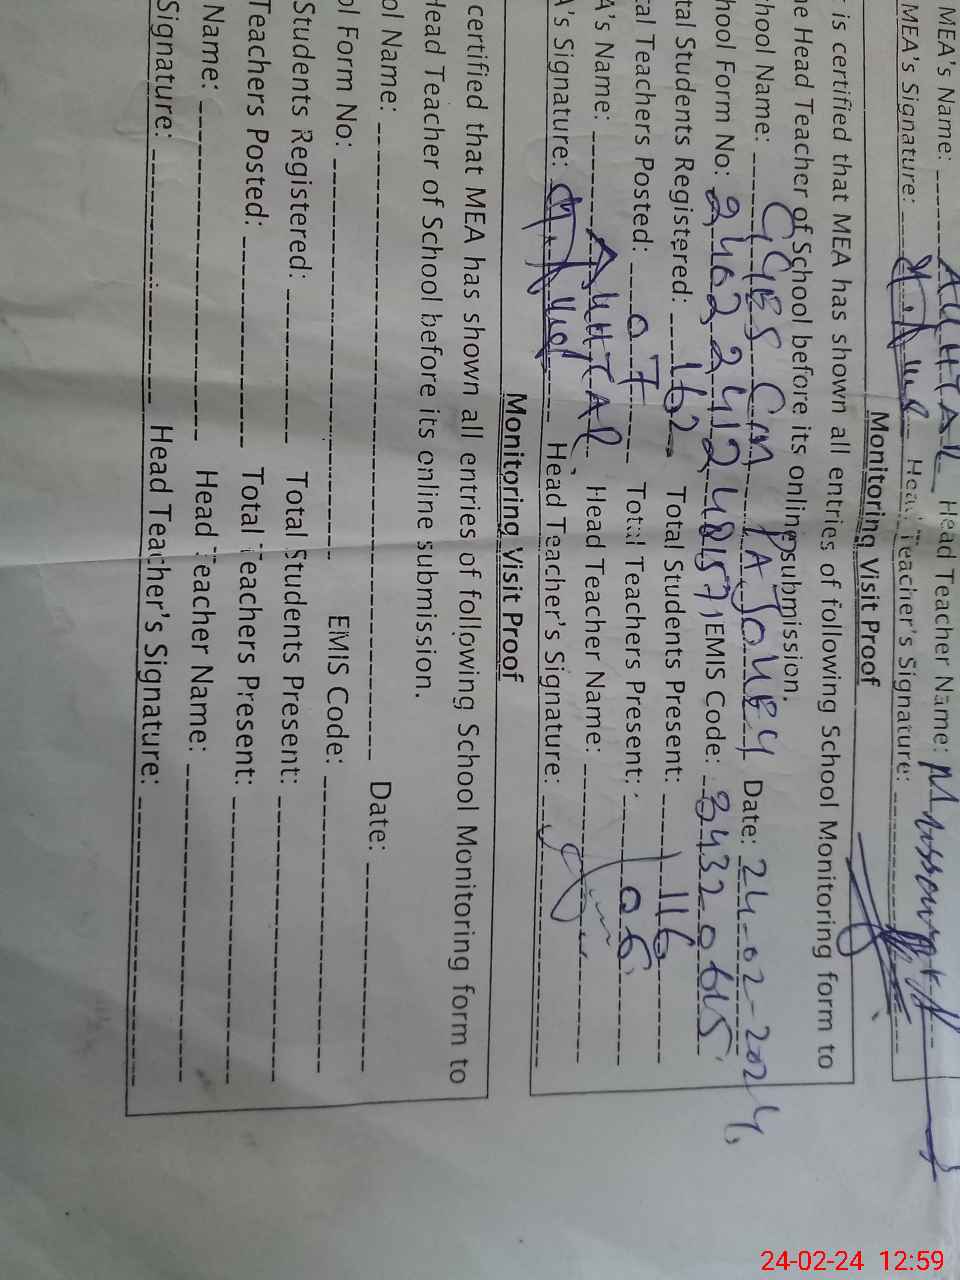 MEA's Name: AKHTAR Head Teacher Name:
MEA's Signature: Head Teacher's Signature:
Monitoring Visit Proof
is certified that MEA has shown all entries of following School Monitoring form to
Head Teacher of School before its online submission.
chool Name: GGES Cm Date: 24-02-2024
hool Form No: EMIS Code:
tal Students Registered: 162 Total Students Present: 116
tal Teachers Posted: 07 Total Teachers Present: 06
A's Name: AKHTAR Head Teacher Name:
A's Signature: Head Teacher's Signature:
Monitoring Visit Proof
certified that MEA has shown all entries of following School Monitoring form to
Head Teacher of School before its online submission.
ol Name: Date:
ol Form No: EMIS Code:
Students Registered: Total Students Present:
Teachers Posted: Total Teachers Present:
Name: Head Teacher Name:
Signature: Head Teacher's Signature:
24-02-24 12:59